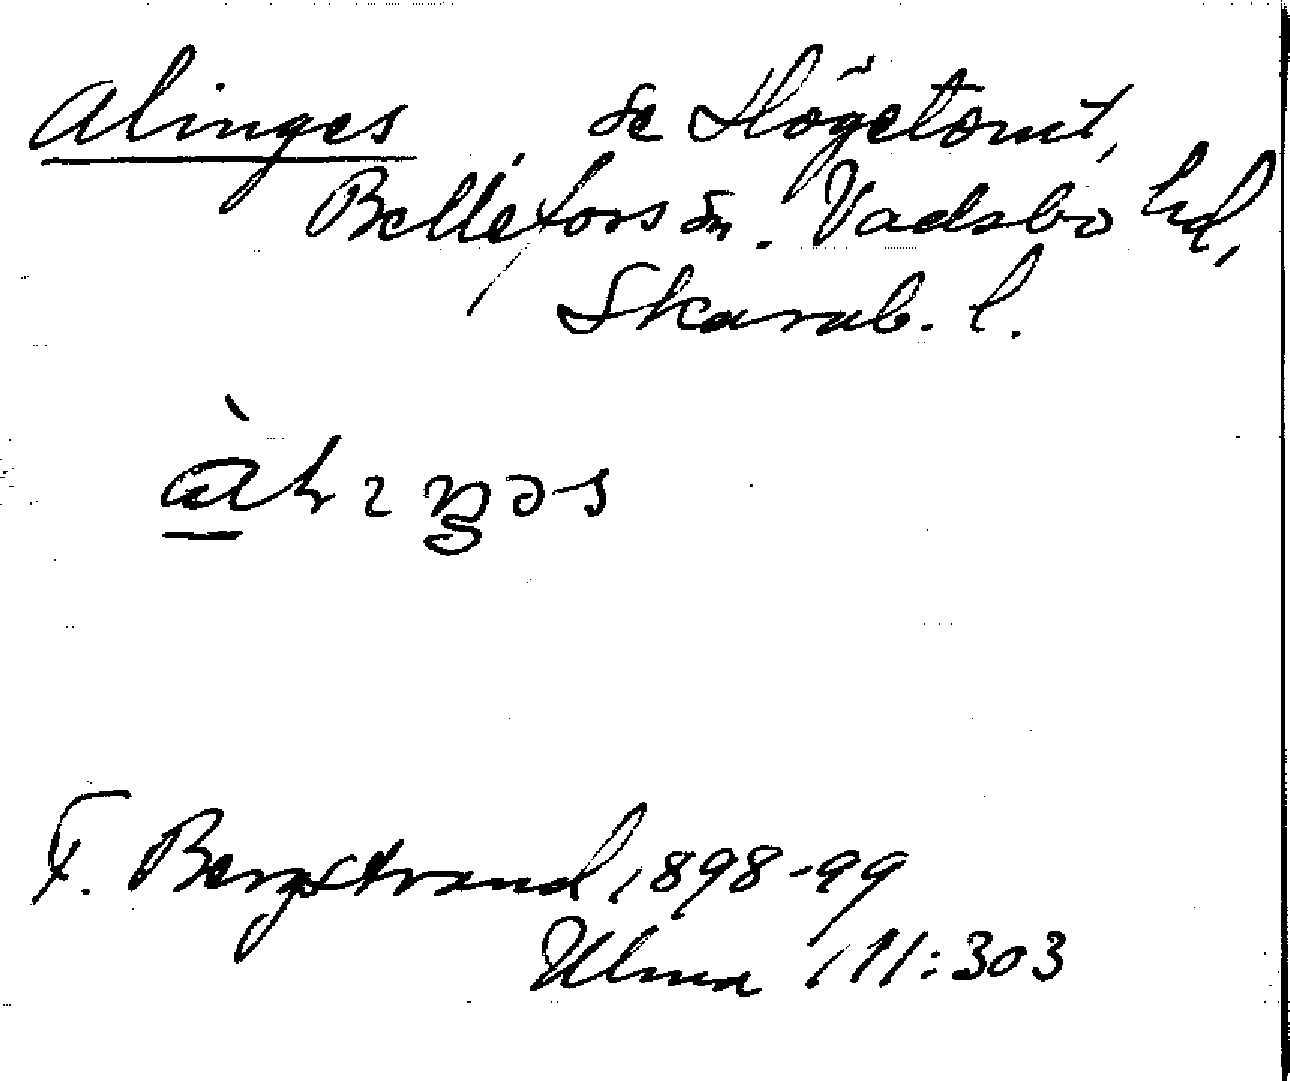 Alinges se Högetomt,
Bellefors sn. Vadsbo hd,
Skarab. l.
F. Bergstrand, 1898-99
Ulma 111:303